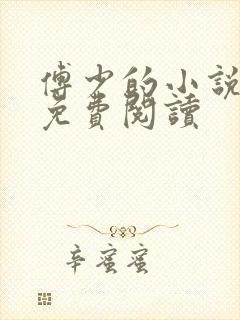 傅少的小說
免費閱讀
辛蜜蜜